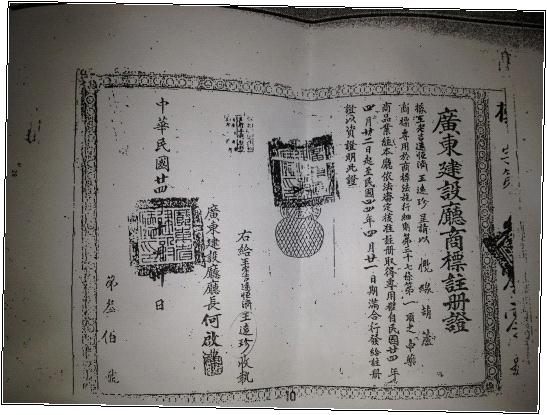 廣東建設廳商標註册證
據王老吉遠恒濟王遠珍呈請以 橄線靖 蓋
商標專用於商標法施行細則第三十七條第一項之 藥
商品業經本廳依法審定核准註册取得專用權自民國廿四年
四月廿二日起至民國四四年四月廿一日期滿合行發給註册
證以資證明此證
右給王老吉遠恒濟王遠珍收執
廣東建設廳廳長何啟灃
中華民國廿四年 月 日
第叁伯 號
10